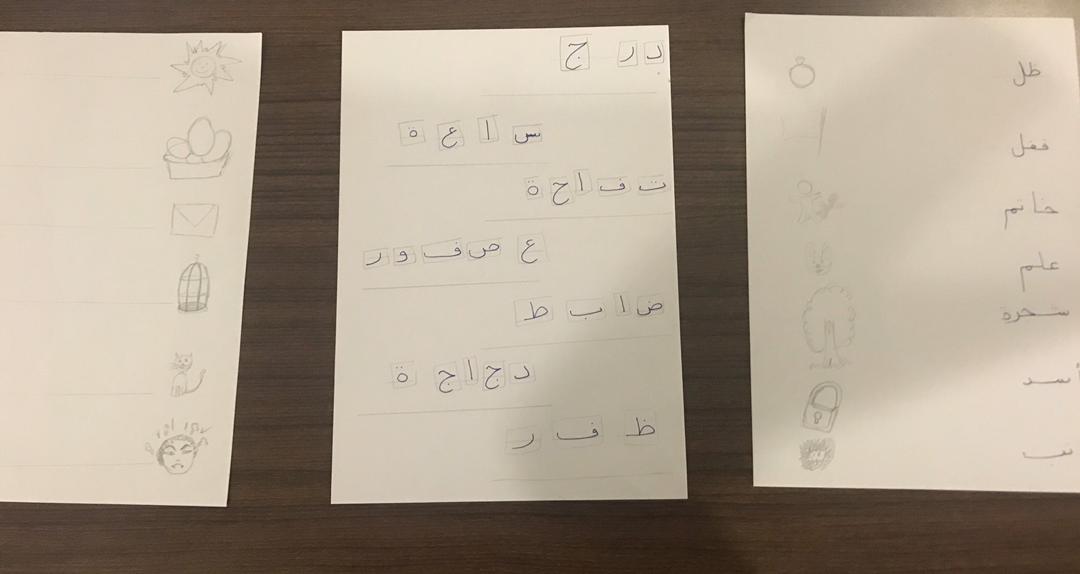 د ر ج
س ا ع ة
ت ف ا ح ة
ع ص ف و ر
ض ا ب ط
د ج ا ج ة
ظ ف ر
ظل
قفل
خاتم
علم
شجرة
أسد